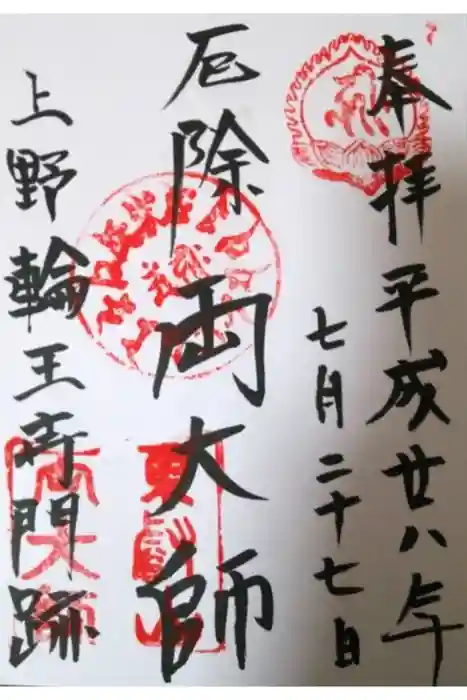 奉拝平成廿八年
七月二十七日
厄除両大師
上野輪王寺門跡